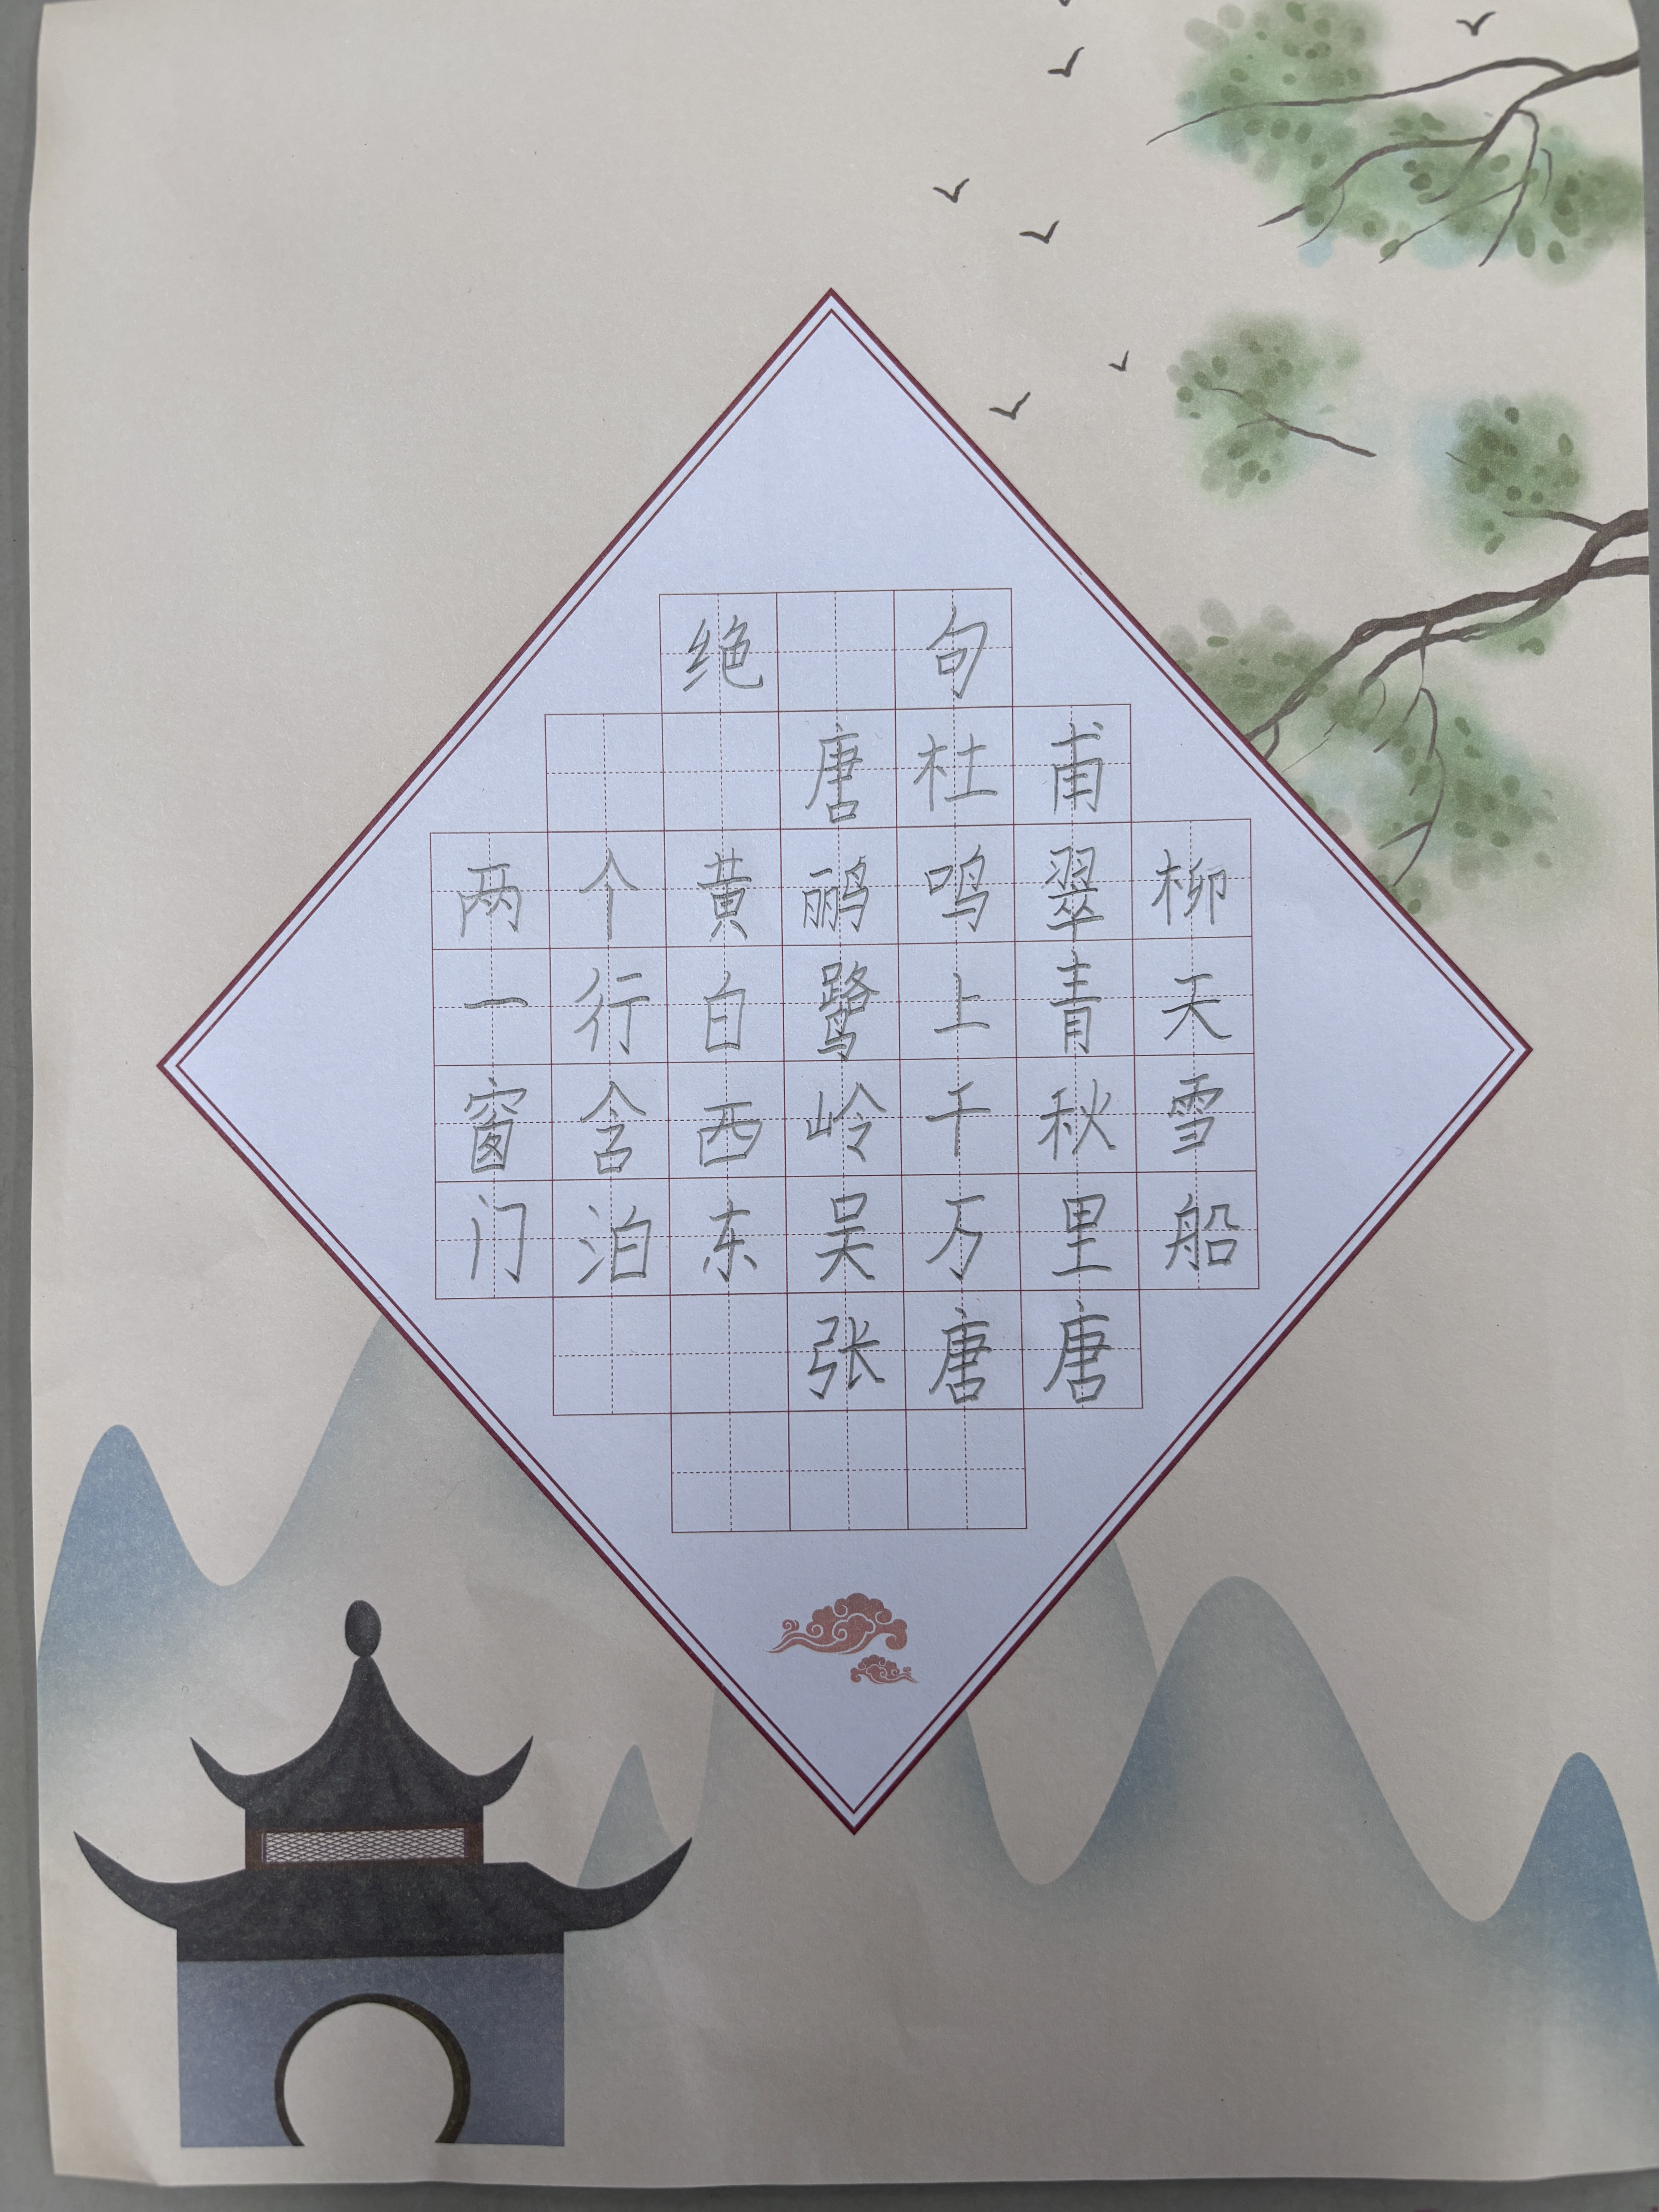 绝 句
唐杜甫
两个黄鹂鸣翠柳
一行白鹭上青天
窗含西岭千秋雪
门泊东吴万里船
张唐唐